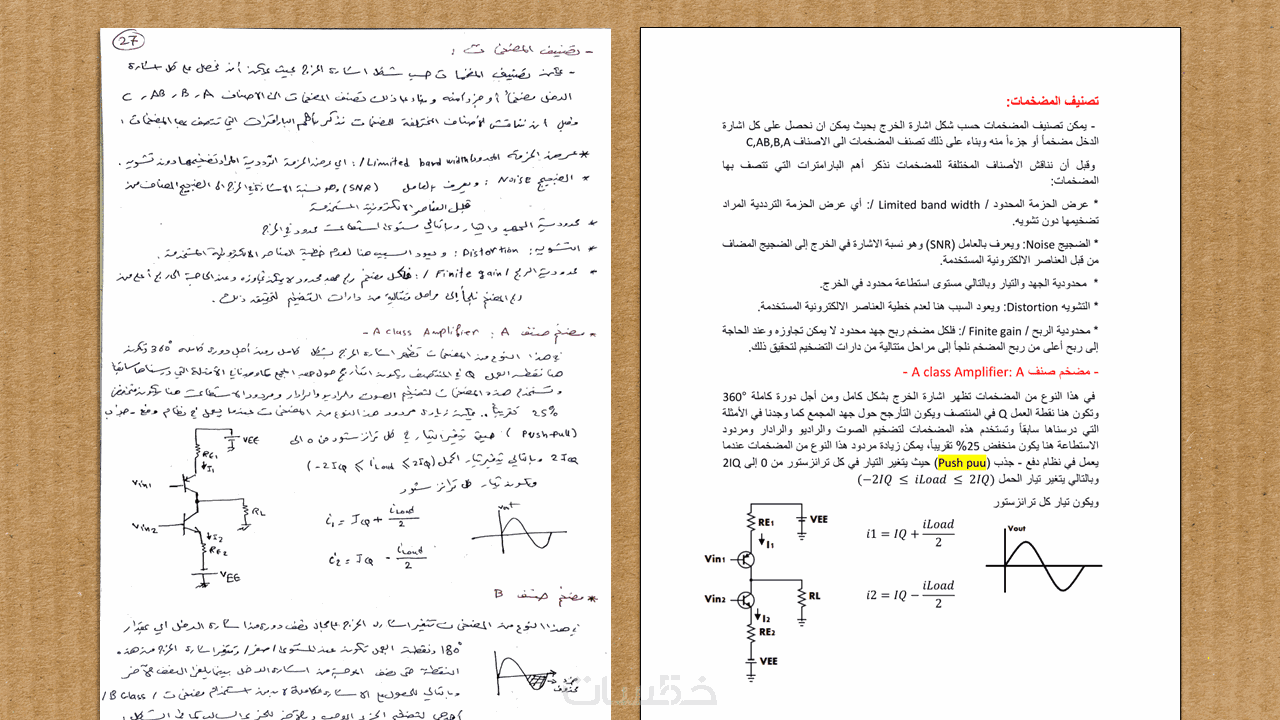 27
- تصنيف المضخمات :
- يمكن تصنيف المضخمات حسب شكل اشارة الخرج بحيث يمكن أن نحصل على كل اشارة
الدخل مضخماً أو جزء منه وبناء على ذلك تصنف المضخمات الى الاصناف C, AB, B, A
وقبل أن نناقش الأصناف المختلفة للمضخمات نذكر بأهم البارامترات التي تتصف بها المضخمات :
* عرض الحزمة المحدود / Limited band width / : اي عرض الحزمة الترددية المراد تضخيمها دون تشويه .
* الضجيج Noise : ويعرف بالعامل (SNR) وهو نسبة الاشارة في الخرج الى الضجيج المضاف من
قبل العناصر الالكترونية المستخدمة
* محدودية الجهد والتيار وبالتالي مستوى استطاعة محدود في الخرج
* التشويه : Distortion : ويعود السبب هنا لعدم خطية العناصر الالكترونية المستخدمة .
* محدودية الربح / Finite gain / : فلكل مضخم ربح جهد محدود لا يمكن تجاوزه وعند الحاجة الى ربح أعلى من
ربح المضخم نلجأ إلى مراحل متتالية من دارات التضخيم لتحقيق ذلك .
* مضخم صنف A : A class Amplifier -
في هذا النوع من المضخمات تظهر اشارة الخرج بشكل كامل ومن أجل دورة كاملة 360°
هنا نقطة العمل Q في المنتصف ويكون التأرجح حول جهد المجمع كما وجدنا في الأمثلة التي درسناها سابقاً
وتستخدم هذه المضخمات لتضخيم الصوت والراديو والرادار ومردود الاستطاعة هنا يكون منخفض
25% تقريباً .. يمكن زيادة مردود هذا النوع من المضخمات عندما يعمل في نظام دفع - جذب
(Push-pull) حيث يتغير التيار في كل ترانزستور من 0 الى
2ICQ وبالتالي يتغير تيار الحمل (-2ICQ ≤ iLoad ≤ 2ICQ)
ويكون تيار كل ترانزستور
i1 = ICQ + iLoad/2
i2 = ICQ - iLoad/2
VEE
RE1
I1
Vin1
RL
Vin2
I2
RE2
VEE
Vout
* مضخم صنف B
في هذا النوع من المضخمات تتغير اشارة الخرج نصف دورة من اشارة الدخل اي بمقدار
180° ونقطة العمل تكون عند المستوى / صفر / وتتغير اشارة الخرج من هذه
النقطة في نصف الموجة من اشارة الدخل بينما النصف الآخر
وبالتالي للحصول على الاشارة كاملة لا بد من استخدام مضخمات / B Class /
جزء محذوف
تصنيف المضخمات:
- يمكن تصنيف المضخمات حسب شكل اشارة الخرج بحيث يمكن ان نحصل على كل اشارة
الدخل مضخماً أو جزءاً منه وبناء على ذلك تصنف المضخمات الى الاصناف C,AB,B,A
وقبل أن نناقش الأصناف المختلفة للمضخمات نذكر أهم البارامترات التي تتصف بها
المضخمات:
* عرض الحزمة المحدود / Limited band width /: أي عرض الحزمة الترددية المراد
تضخيمها دون تشويه.
* الضجيج Noise: ويعرف بالعامل (SNR) وهو نسبة الاشارة في الخرج إلى الضجيج المضاف
من قبل العناصر الالكترونية المستخدمة.
* محدودية الجهد والتيار وبالتالي مستوى استطاعة محدود في الخرج.
* التشويه Distortion: ويعود السبب هنا لعدم خطية العناصر الالكترونية المستخدمة.
* محدودية الربح / Finite gain /: فلكل مضخم ربح جهد محدود لا يمكن تجاوزه وعند الحاجة
إلى ربح أعلى من ربح المضخم نلجأ إلى مراحل متتالية من دارات التضخيم لتحقيق ذلك.
- مضخم صنف A class Amplifier: A -
في هذا النوع من المضخمات تظهر اشارة الخرج بشكل كامل ومن أجل دورة كاملة 360°
وتكون هنا نقطة العمل Q في المنتصف ويكون التأرجح حول جهد المجمع كما وجدنا في الأمثلة
التي درسناها سابقاً وتستخدم هذه المضخمات لتضخيم الصوت والراديو والرادار ومردود
الاستطاعة هنا يكون منخفض 25% تقريباً، يمكن زيادة مردود هذا النوع من المضخمات عندما
يعمل في نظام دفع - جذب (Push puu) حيث يتغير التيار في كل ترانزستور من 0 إلى 2IQ
وبالتالي يتغير تيار الحمل (−2IQ ≤ iLoad ≤ 2IQ)
ويكون تيار كل ترانزستور
i1 = IQ + iLoad/2
i2 = IQ − iLoad/2
RE1
VEE
I1
Vin1
Vin2
RL
I2
RE2
VEE
Vout
خمسات